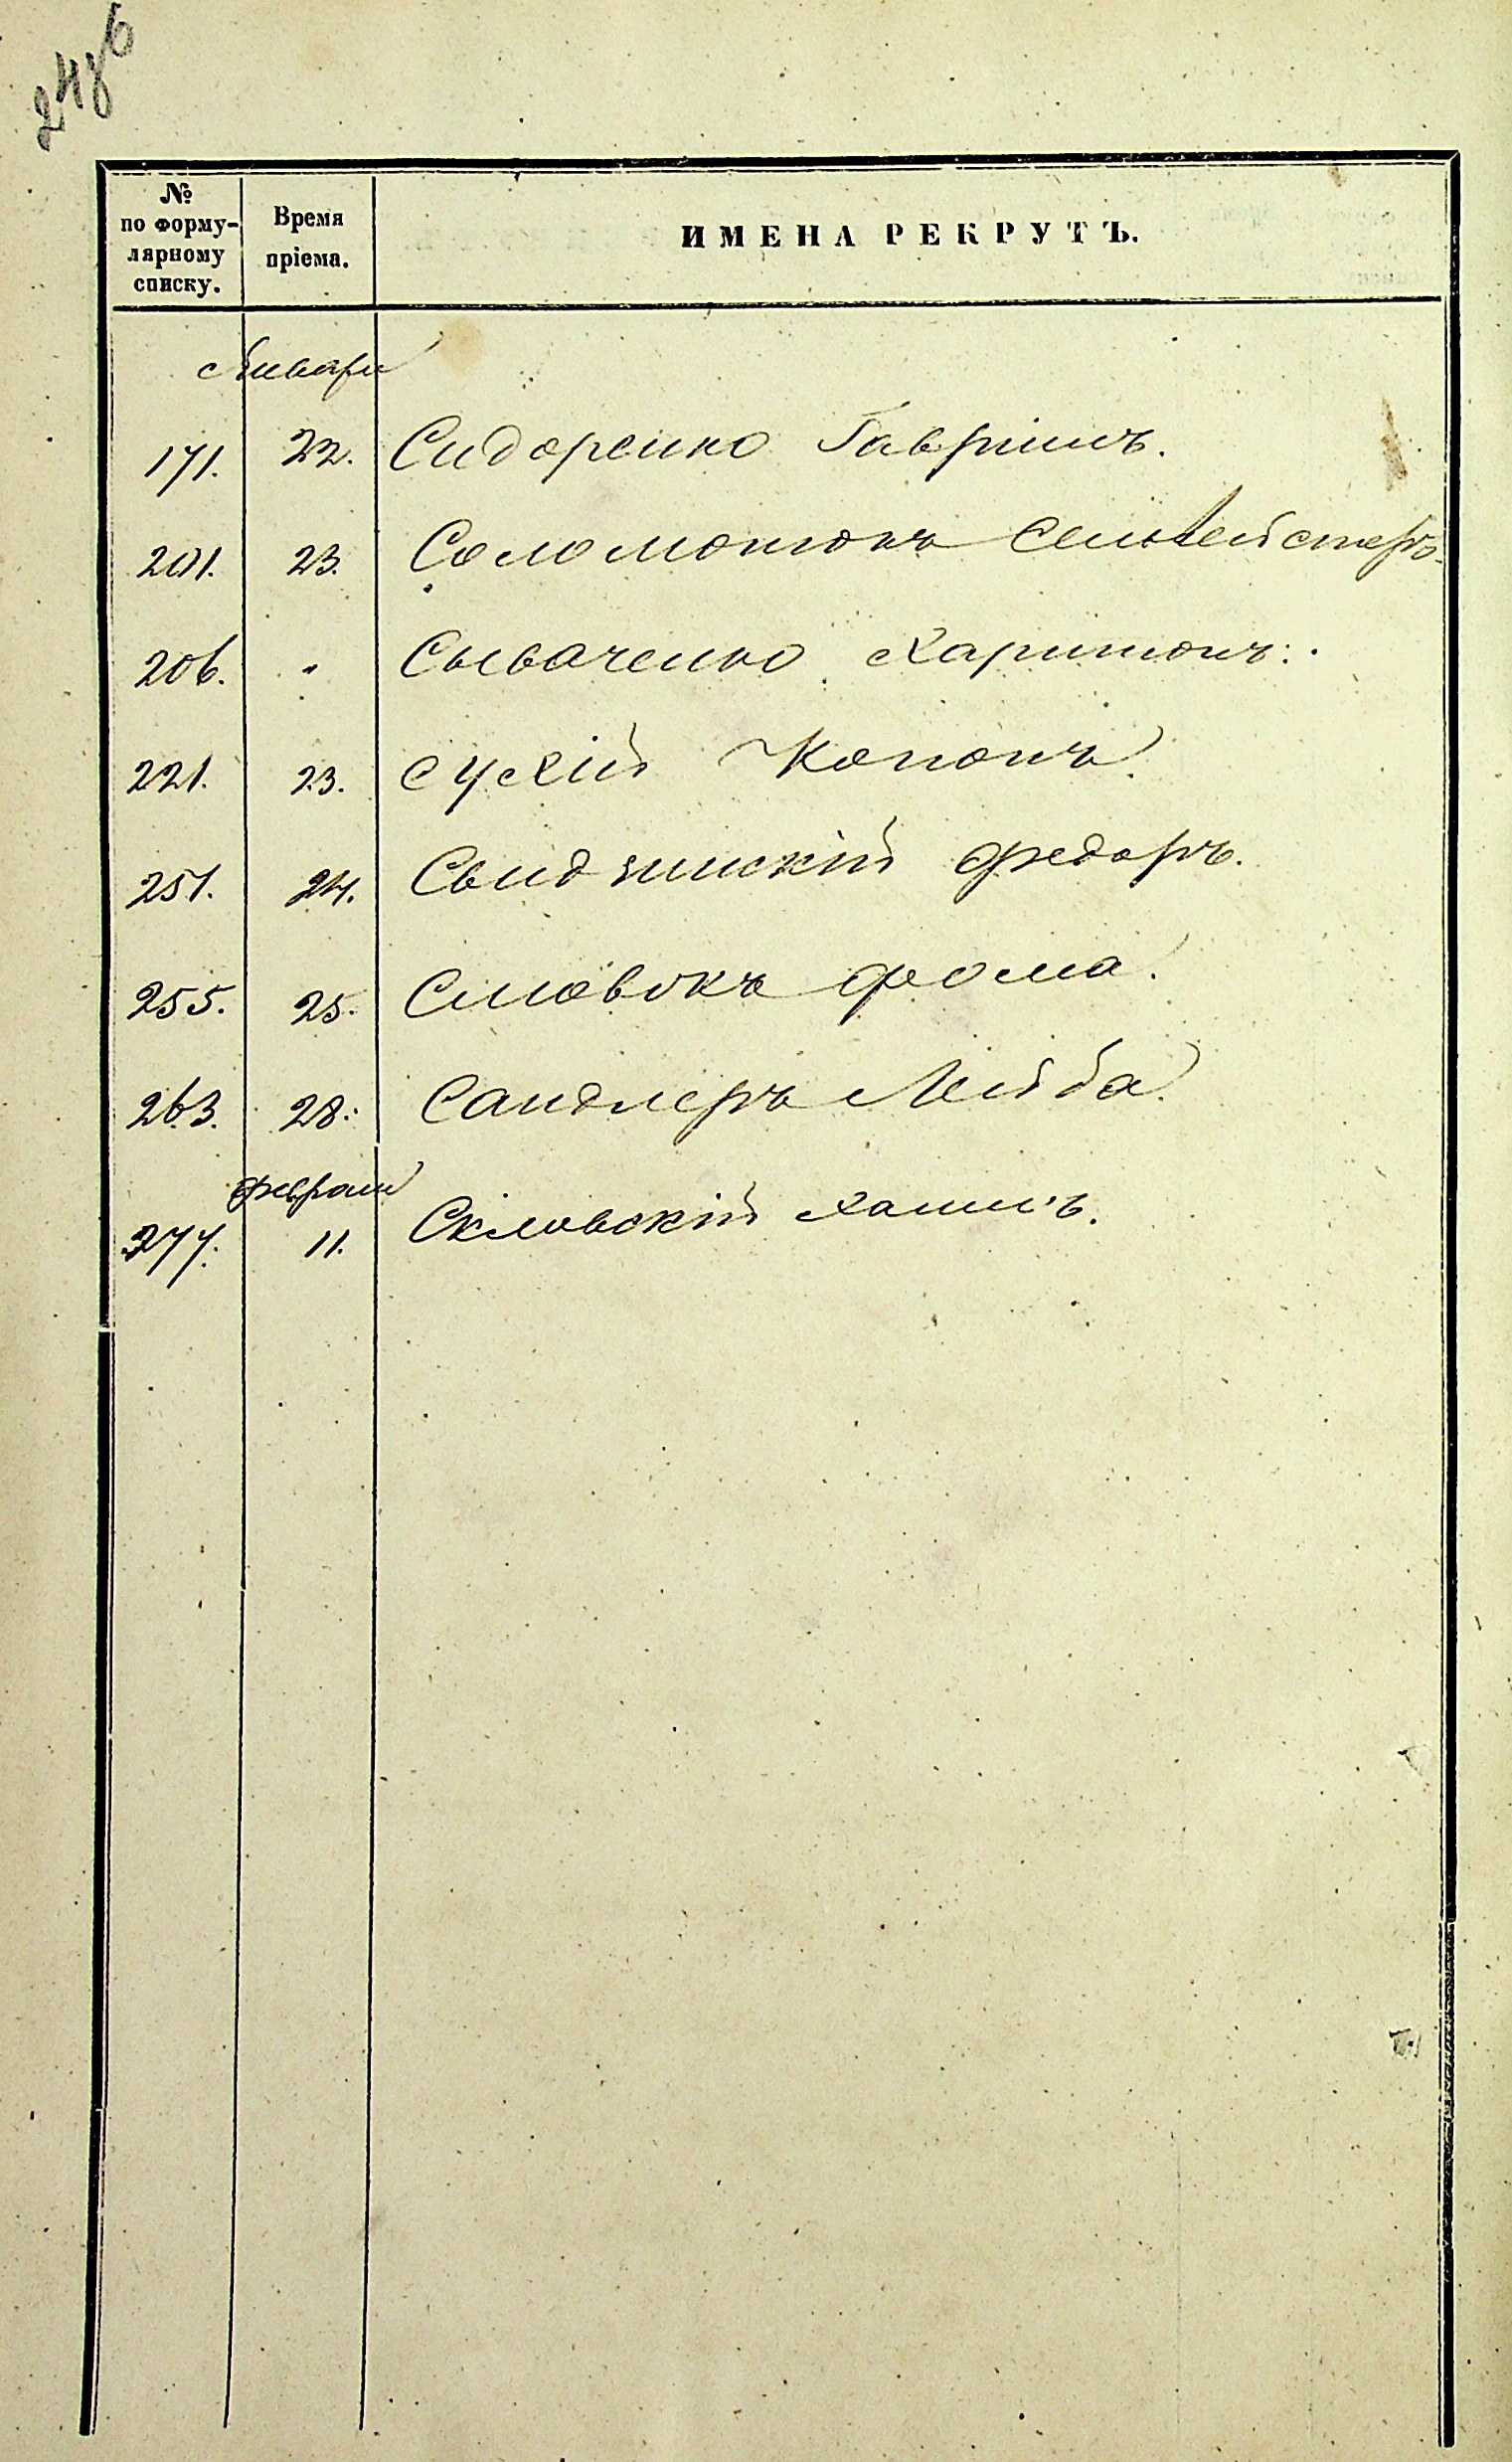 248б
№ по форму-лярному списку.
Время пріема.
ИМЕНА РЕКРУТЪ.
Января
171. 22. Сидоренко Гавріилъ.
201. 23. Соломонюкъ Сельвестръ.
206. " Сываченко Харитонъ.
221. 23. Сухій Кононъ.
251. 24. Свидзинскій Федоръ.
255. 25. Фома.
263. 28. Сандлеръ Лейба.
Февраля
277. 11. Скловскій Хаимъ.